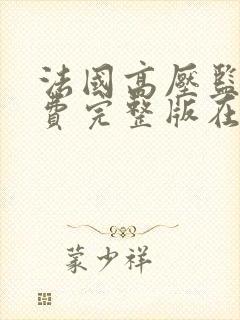 法國高壓監
費完整版在
蒙少祥